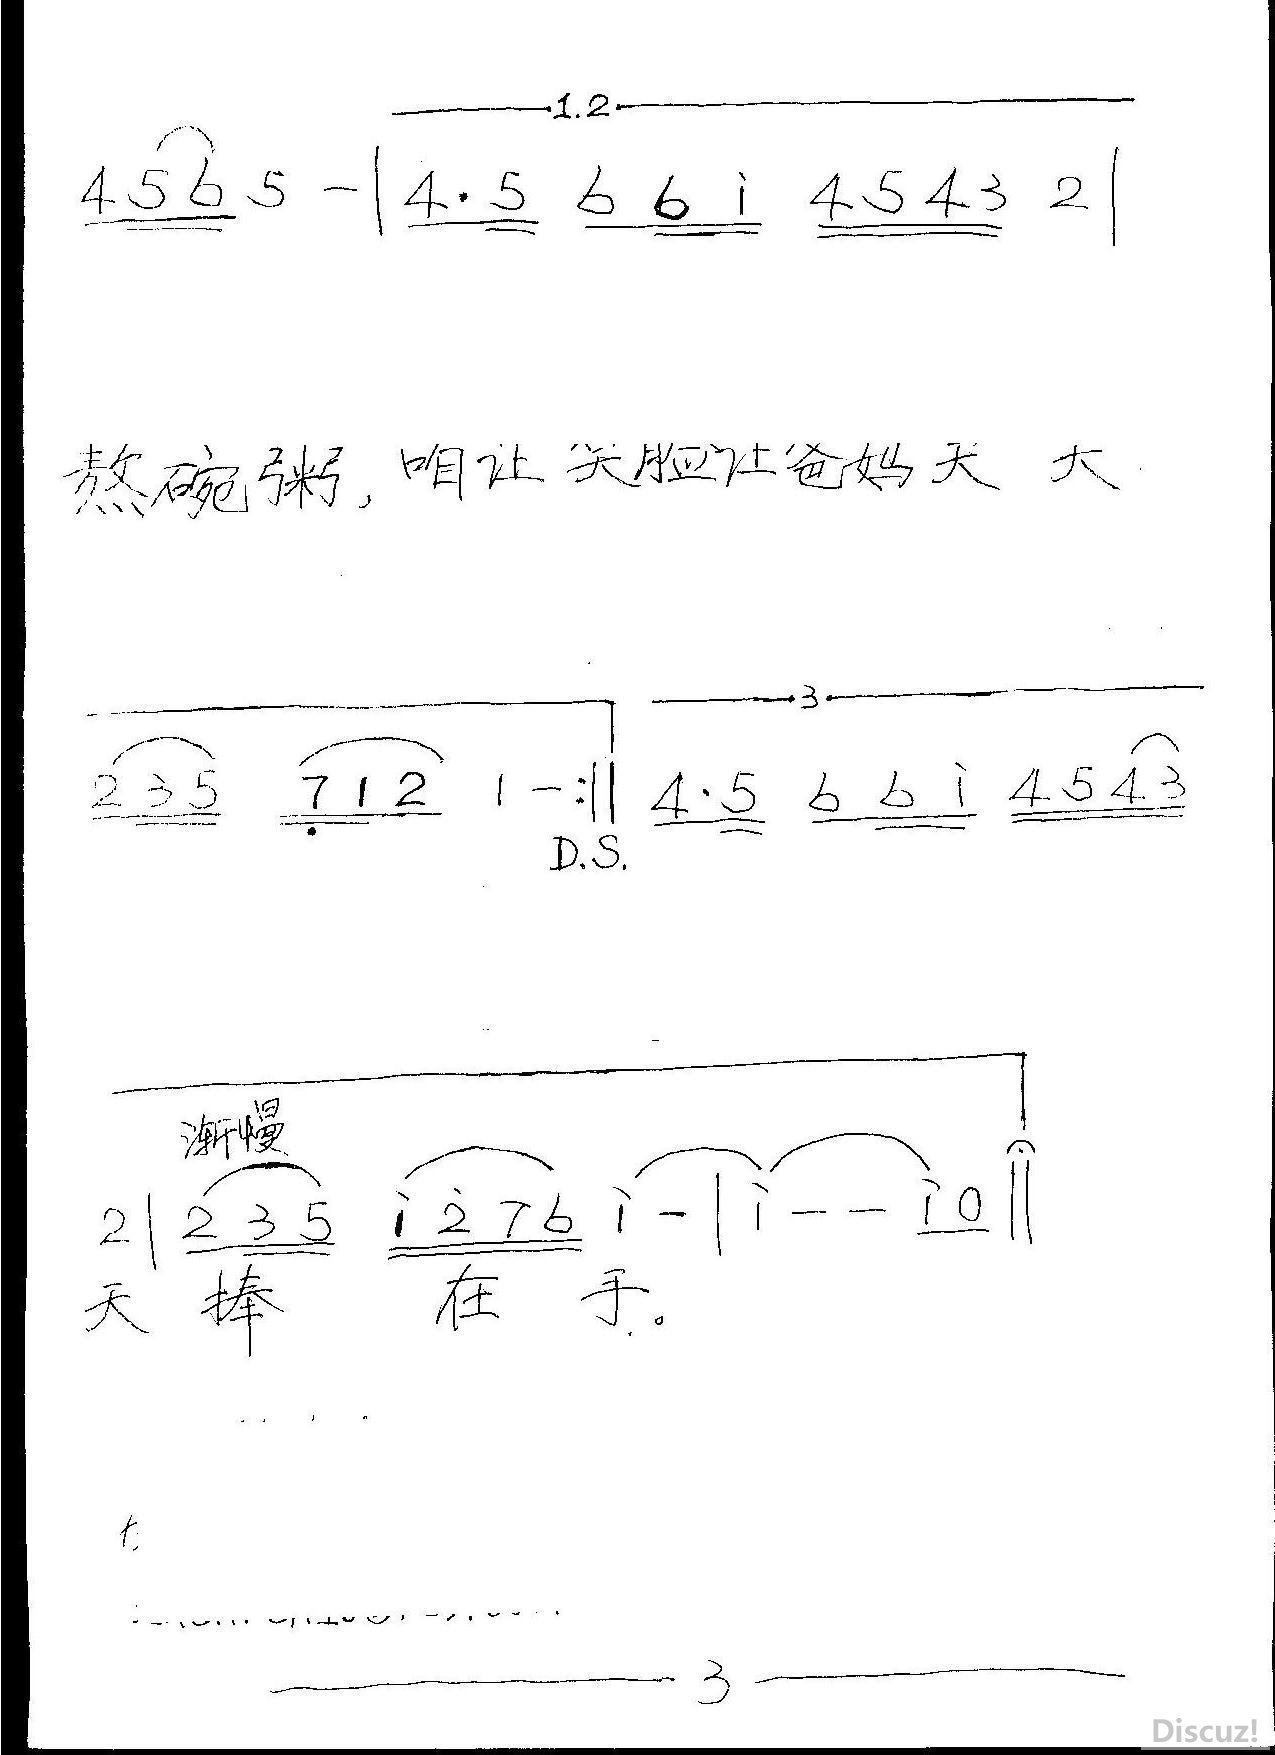 1.2
4 5 6 5 - | 4 · 5 6 6 i 4 5 4 3 2 |
熬碗粥,咱让笑脸让爸妈天 大
3
2 3 5 7 1 2 1 - :|| 4 · 5 6 6 i 4 5 4 3
D.S.
渐慢
2 | 2 3 5 i 2 7 6 i - | i - - i 0 ||
天 捧 在 手。
3
Discuz!